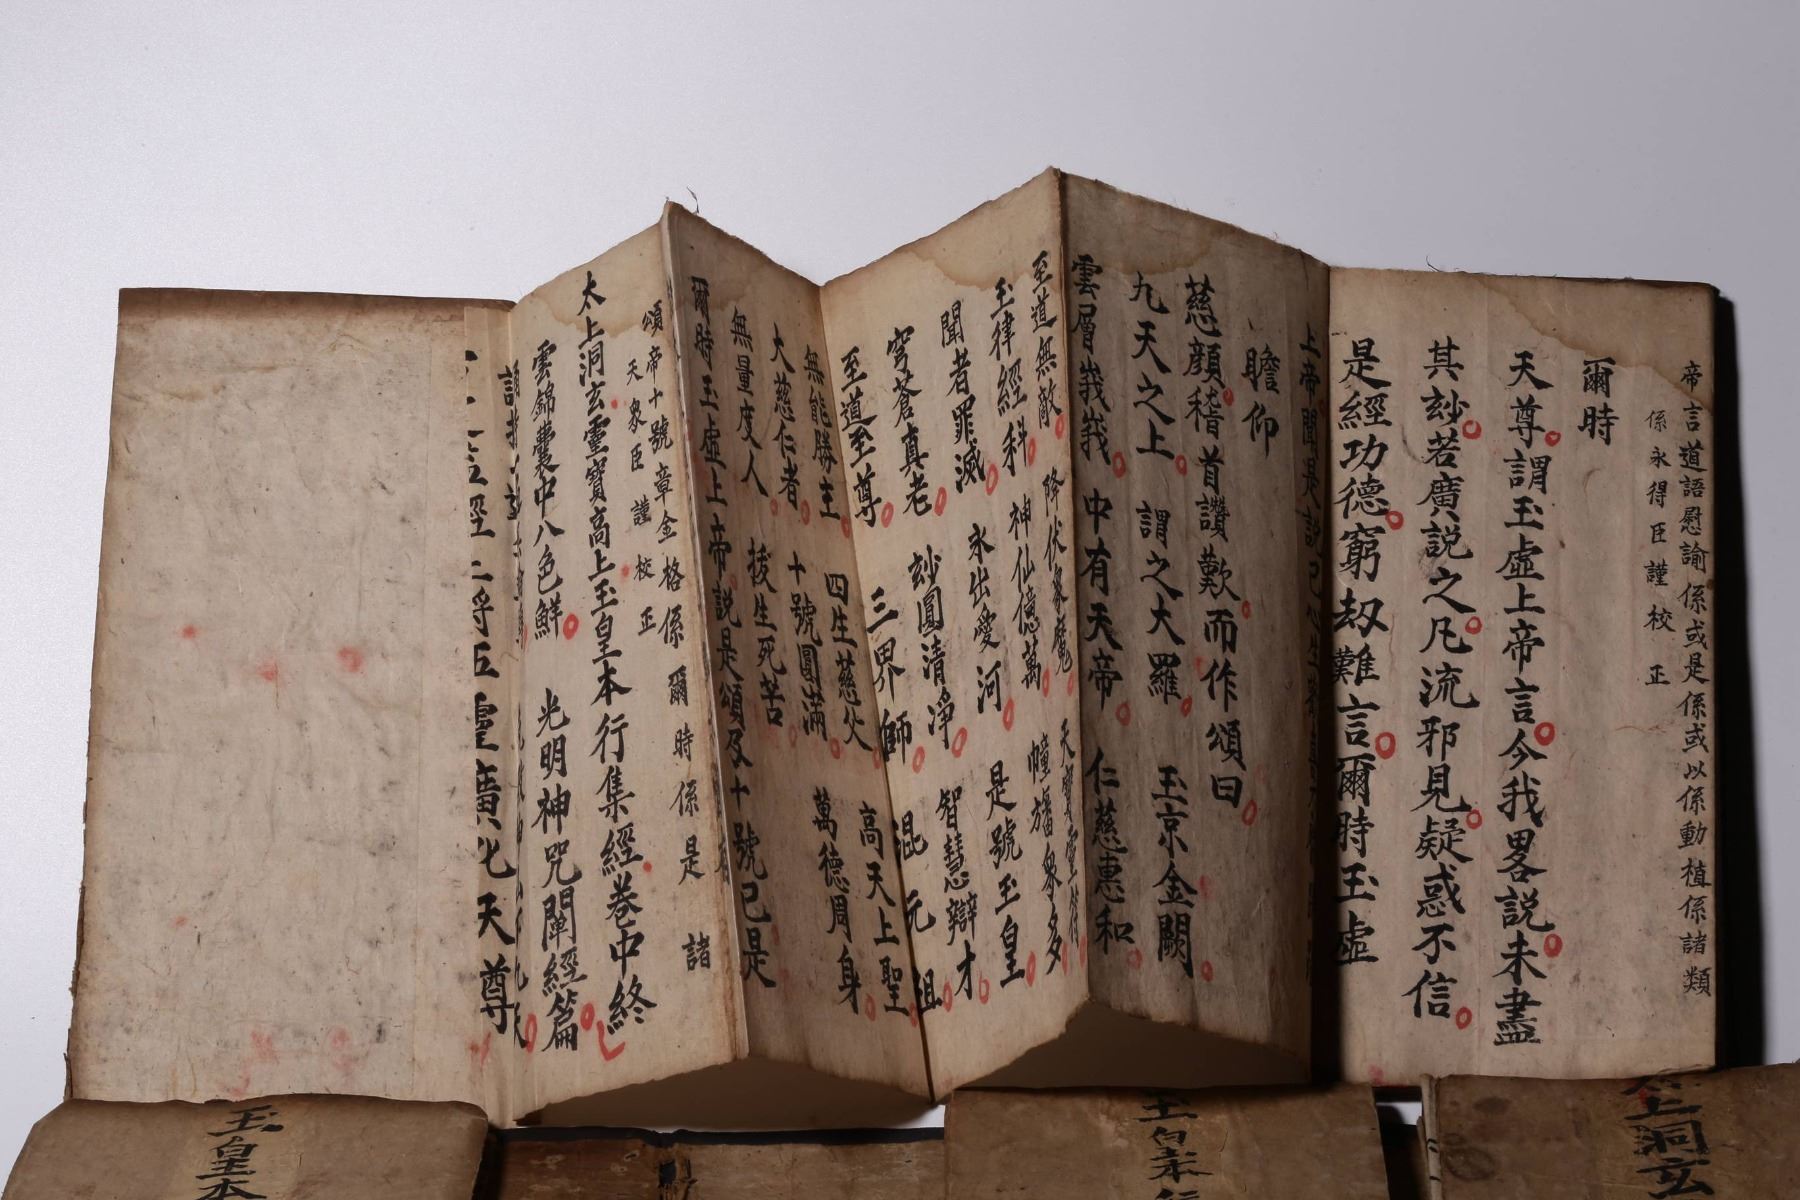 帝言道語慰諭係或是係或以係動植係諸類
係永得臣謹校正
爾時
天尊謂玉虛上帝言今我畧説未盡
其玅若廣説之凡流邪見疑惑不信
是經功德窮劫難言爾時玉虛
上帝聞是説已心生
瞻仰
慈顔稽首讚歎而作頌曰
九天之上 謂之大羅 玉京金闕
雲層峩峩 中有天帝 仁慈惠和
至道無敵 降伏衆魔 天寶靈符
玉律經科 神仙億萬 幢旛衆多
聞者罪滅 永出愛河 是號玉皇
穹蒼真老 玅圓清淨 智慧辯才
至道至尊 三界師 混元祖
無能勝主 四生慈父 高天上聖
大慈仁者 十號圓滿 萬德周身
無量度人 拔生死苦
爾時玉虛上帝説是頌及十號已是
頌帝十號章金格係爾時係是諸
天衆臣謹校正
太上洞玄靈寶高上玉皇本行集經卷中終
雲錦囊中八色鮮 光明神咒闡經篇
五靈廣化天尊
玉皇本
玉皇本行
太上洞玄